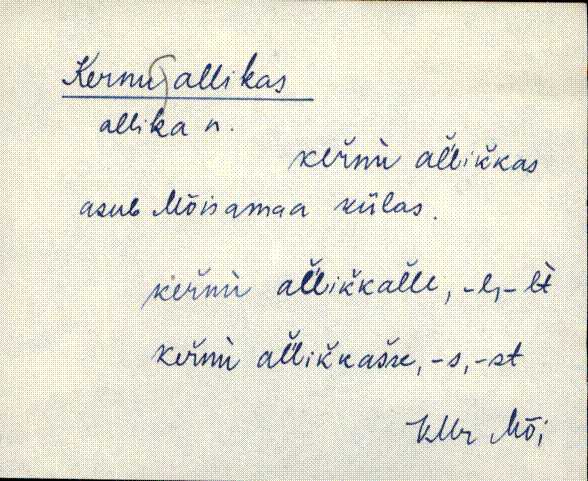 Kernu allikas
allika n.
keřnù al̆likkas
asub Mõisamaa külas.
keřnù al̆likkal̆le, -l, -lt
keřnù al̆likkas̆se, -s, -st
Mõi